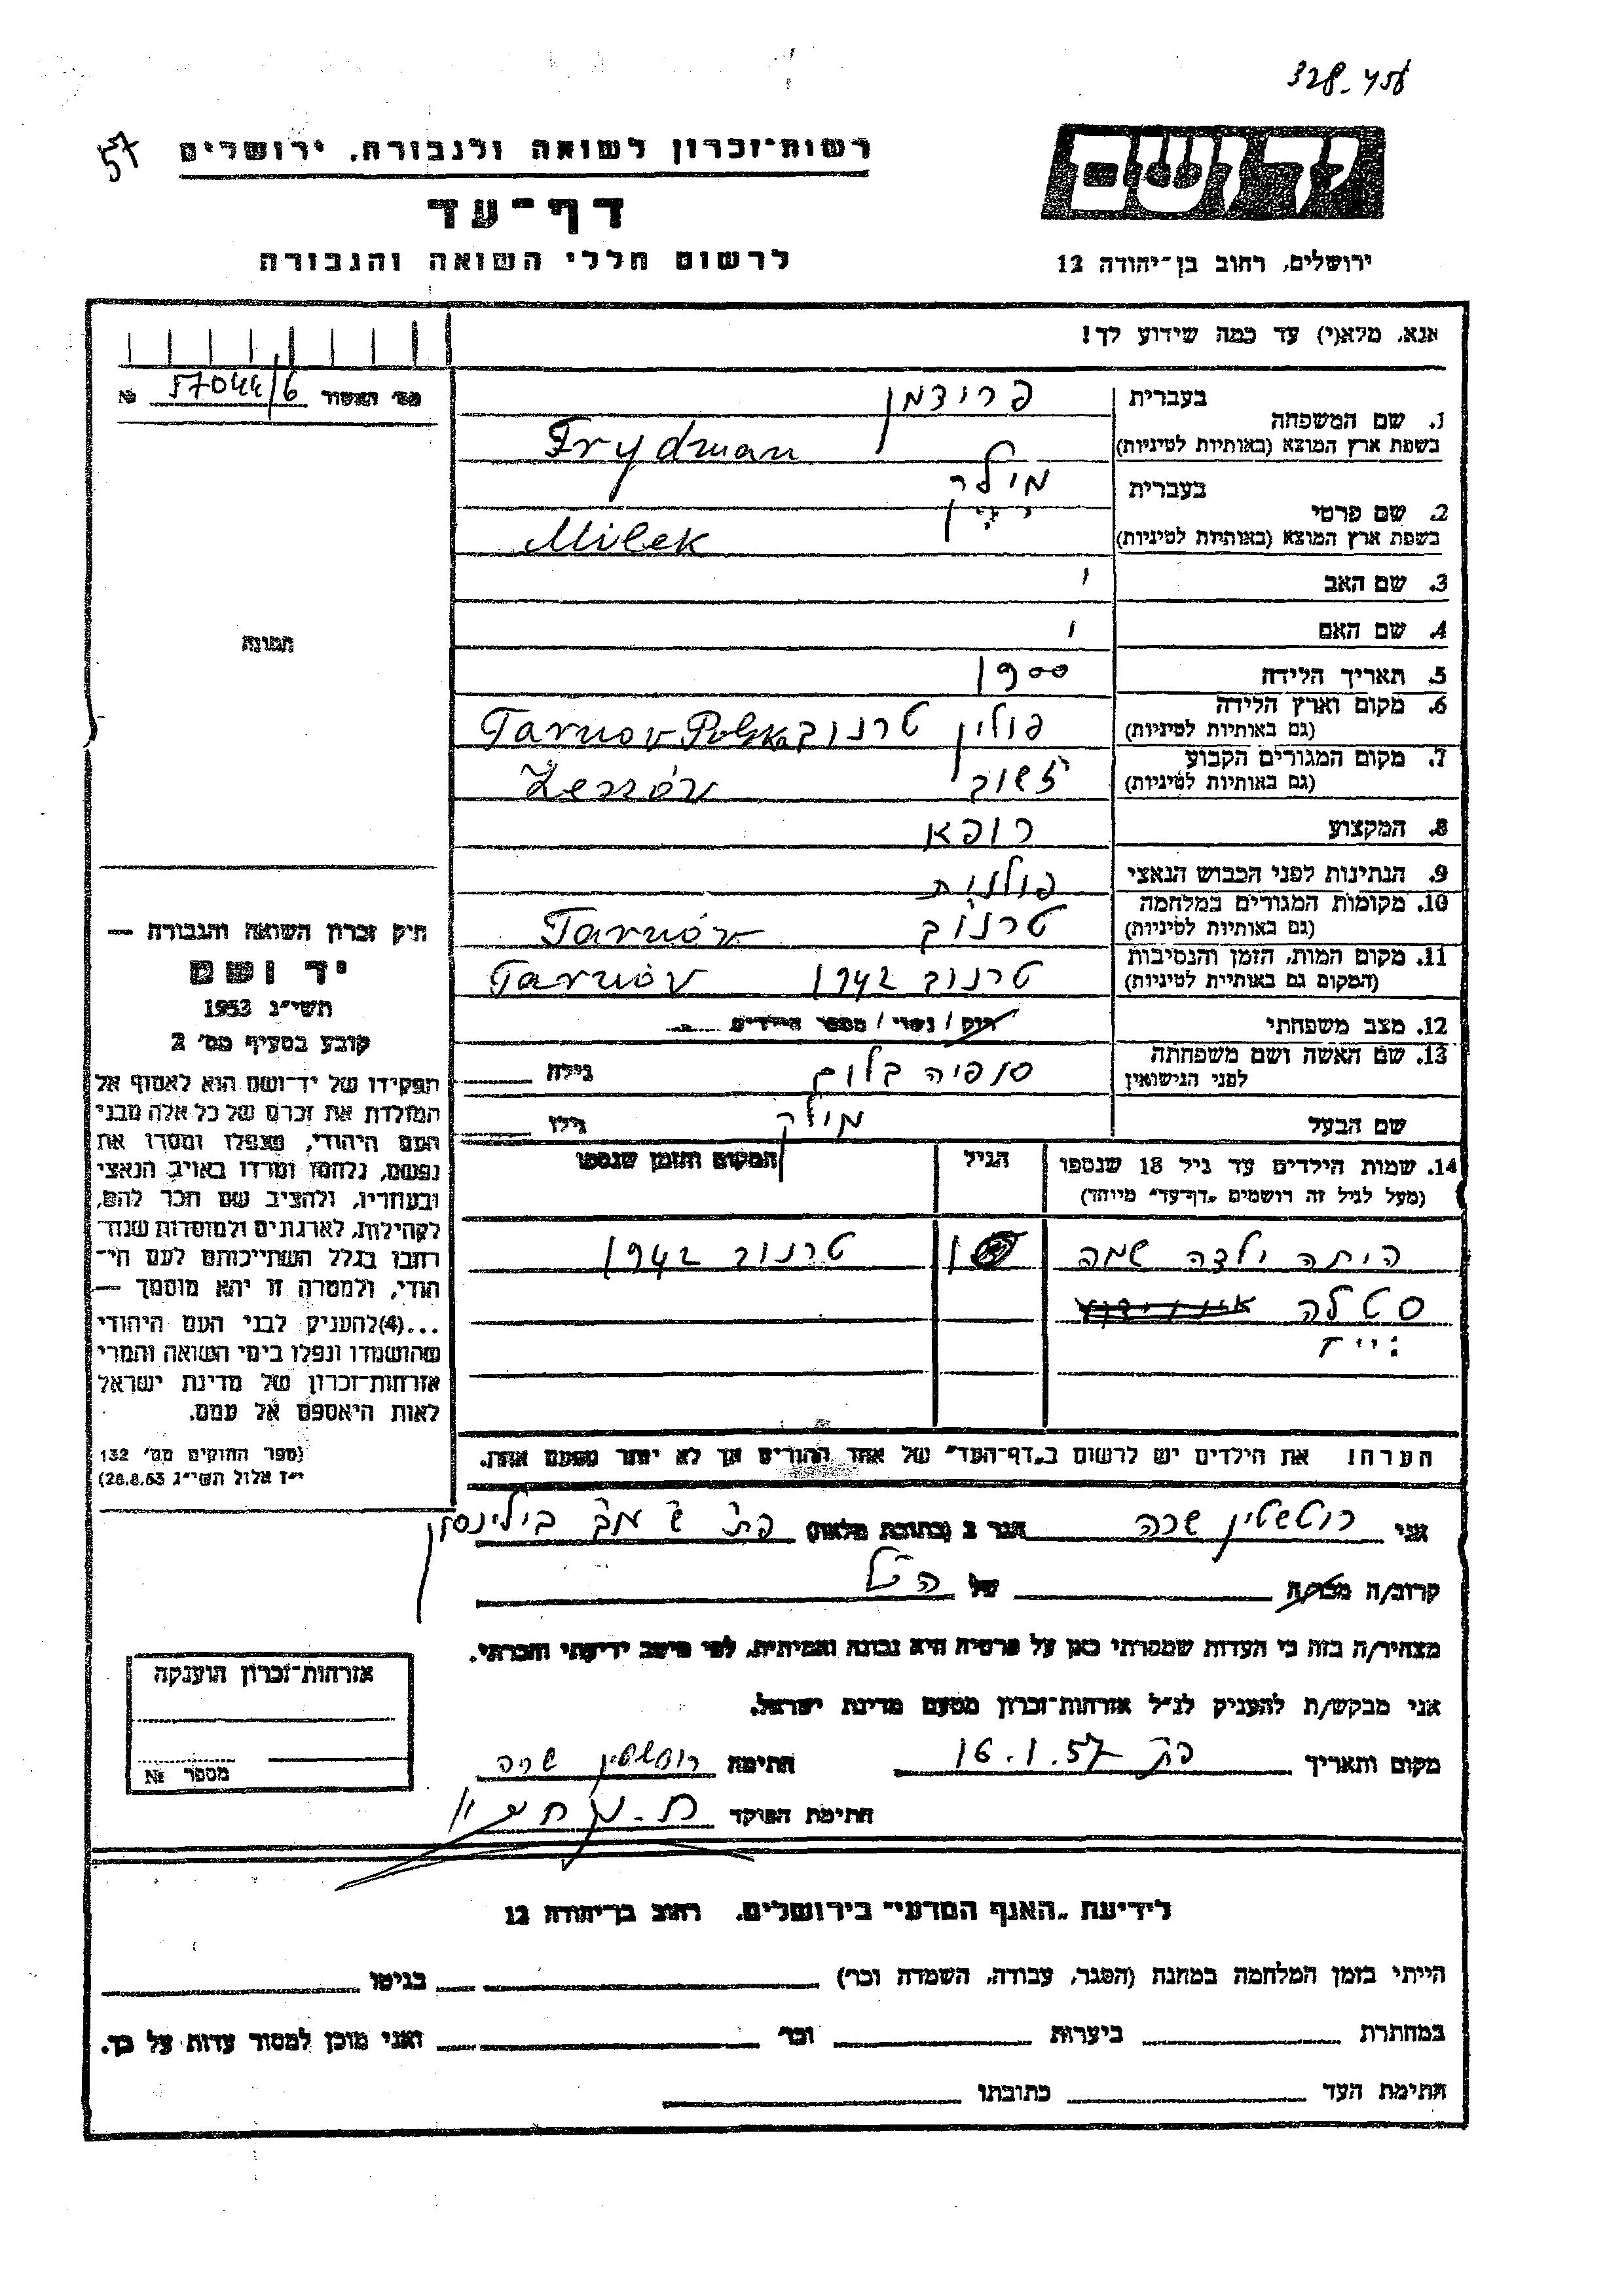 328-458
57
רשות־זכרון לשואה ולגבורה, ירושלים
יד ושם
דף־עד
לרשום חללי השואה והגבורה
ירושלים, רחוב בן־יהודה 12
אנא, מלא(י) עד כמה שידוע לך!
מס׳ האשור 57044/6 №
1. שם המשפחה
בעברית פרידמן
בשפת ארץ המוצא (באותיות לטיניות) Frydman
2. שם פרטי
בעברית מילק
בשפת ארץ המוצא (באותיות לטיניות) Milek
3. שם האב
4. שם האם
תמונה
5. תאריך הלידה 1900
6. מקום וארץ הלידה
(גם באותיות לטיניות) פולין טרנוב Tarnov Polska
7. מקום המגורים הקבוע
(גם באותיות לטיניות) ז׳שוב
8. המקצוע רופא
9. הנתינות לפני הכבוש הנאצי פולנית
10. מקומות המגורים במלחמה
(גם באותיות לטיניות) טרנוב Tarnów
11. מקום המות, הזמן והנסיבות
(המקום גם באותיות לטיניות) טרנוב 1942 Tarnów
12. מצב משפחתי רווק / נשוי / מספר הילדים
13. שם האשה ושם משפחתה
לפני הנישואין סופיה בלום גילה
שם הבעל מילק גילו
14. שמות הילדים עד גיל 18 שנספו
(מעל לגיל זה רושמים „דף־עד" מיוחד)
הגיל
המקום והזמן שנספו
היתה ילדה שמה טרנוב 1942
סטלה
הערה! את הילדים יש לרשום ב„דף־העד" של אחד ההורים אך לא יותר מפעם אחת.
חוק זכרון השואה והגבורה —
יד ושם
תשי״ג 1953
קובע בסעיף מס׳ 2
תפקידו של יד־ושם הוא לאסוף אל
המולדת את זכרם של כל אלה מבני
העם היהודי, שנפלו ומסרו את
נפשם, נלחמו ומרדו באויב הנאצי
ובעוזריו, ולהציב שם וזכר להם,
לקהילות, לארגונים ולמוסדות שנח־
רבו בגלל השתייכותם לעם היה־
הודי, ולמטרה זו יהא מוסמך —
...(4) להעניק לבני העם היהודי
שהושמדו ונפלו בימי השואה והמרי
אזרחות־זכרון של מדינת ישראל
לאות היאספם אל עמם.
(ספר החוקים מס׳ 132
י״ז אלול תשי״ג 28.8.53)
אני רוטשטין שרה הגר ב (כתובת מלאה) בילינסון
קרוב/ה מכר/ה של הנ״ל
מצהיר/ה בזה כי העדות שמסרתי כאן על פרטיה היא נכונה ואמיתית, לפי מיטב ידיעתי והכרתי.
אני מבקש/ת להעניק לנ״ל אזרחות־זכרון מטעם מדינת ישראל.
מקום ותאריך פת 16.1.57 חתימה רוטשטין שרה
חתימת הפוקד
אזרחות־זכרון הוענקה
מספר №
לידיעת „האגף המדעי" בירושלים. רחוב בן־יהודה 12
הייתי בזמן המלחמה במחנה (הסגר, עבודה, השמדה וכו׳) בגיטו
במחתרת ביערות וכו׳ ואני מוכן למסור עדות על כך.
חתימת העד כתובתו